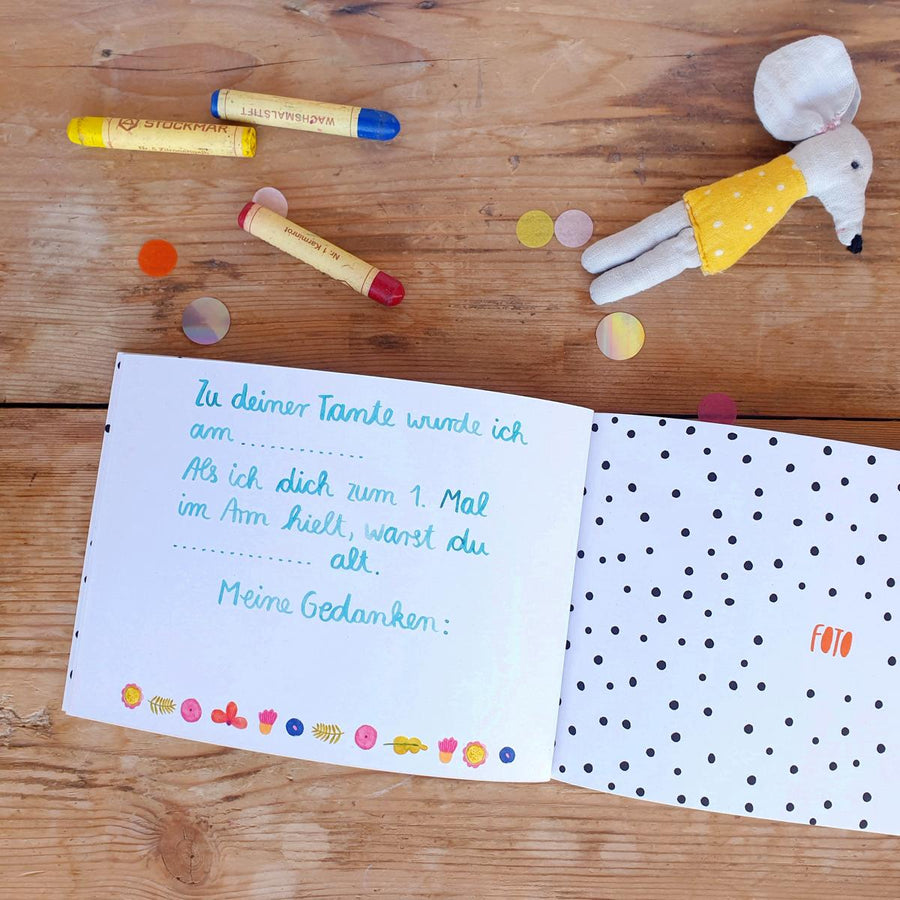 STOCKMAR
WACHSMALSTIFT
Nr. 1 Karminrot
Zu deiner Tante wurde ich
am.............
Als ich dich zum 1. Mal
im Arm hielt, warst du
............... alt.
Meine Gedanken:
FOTO